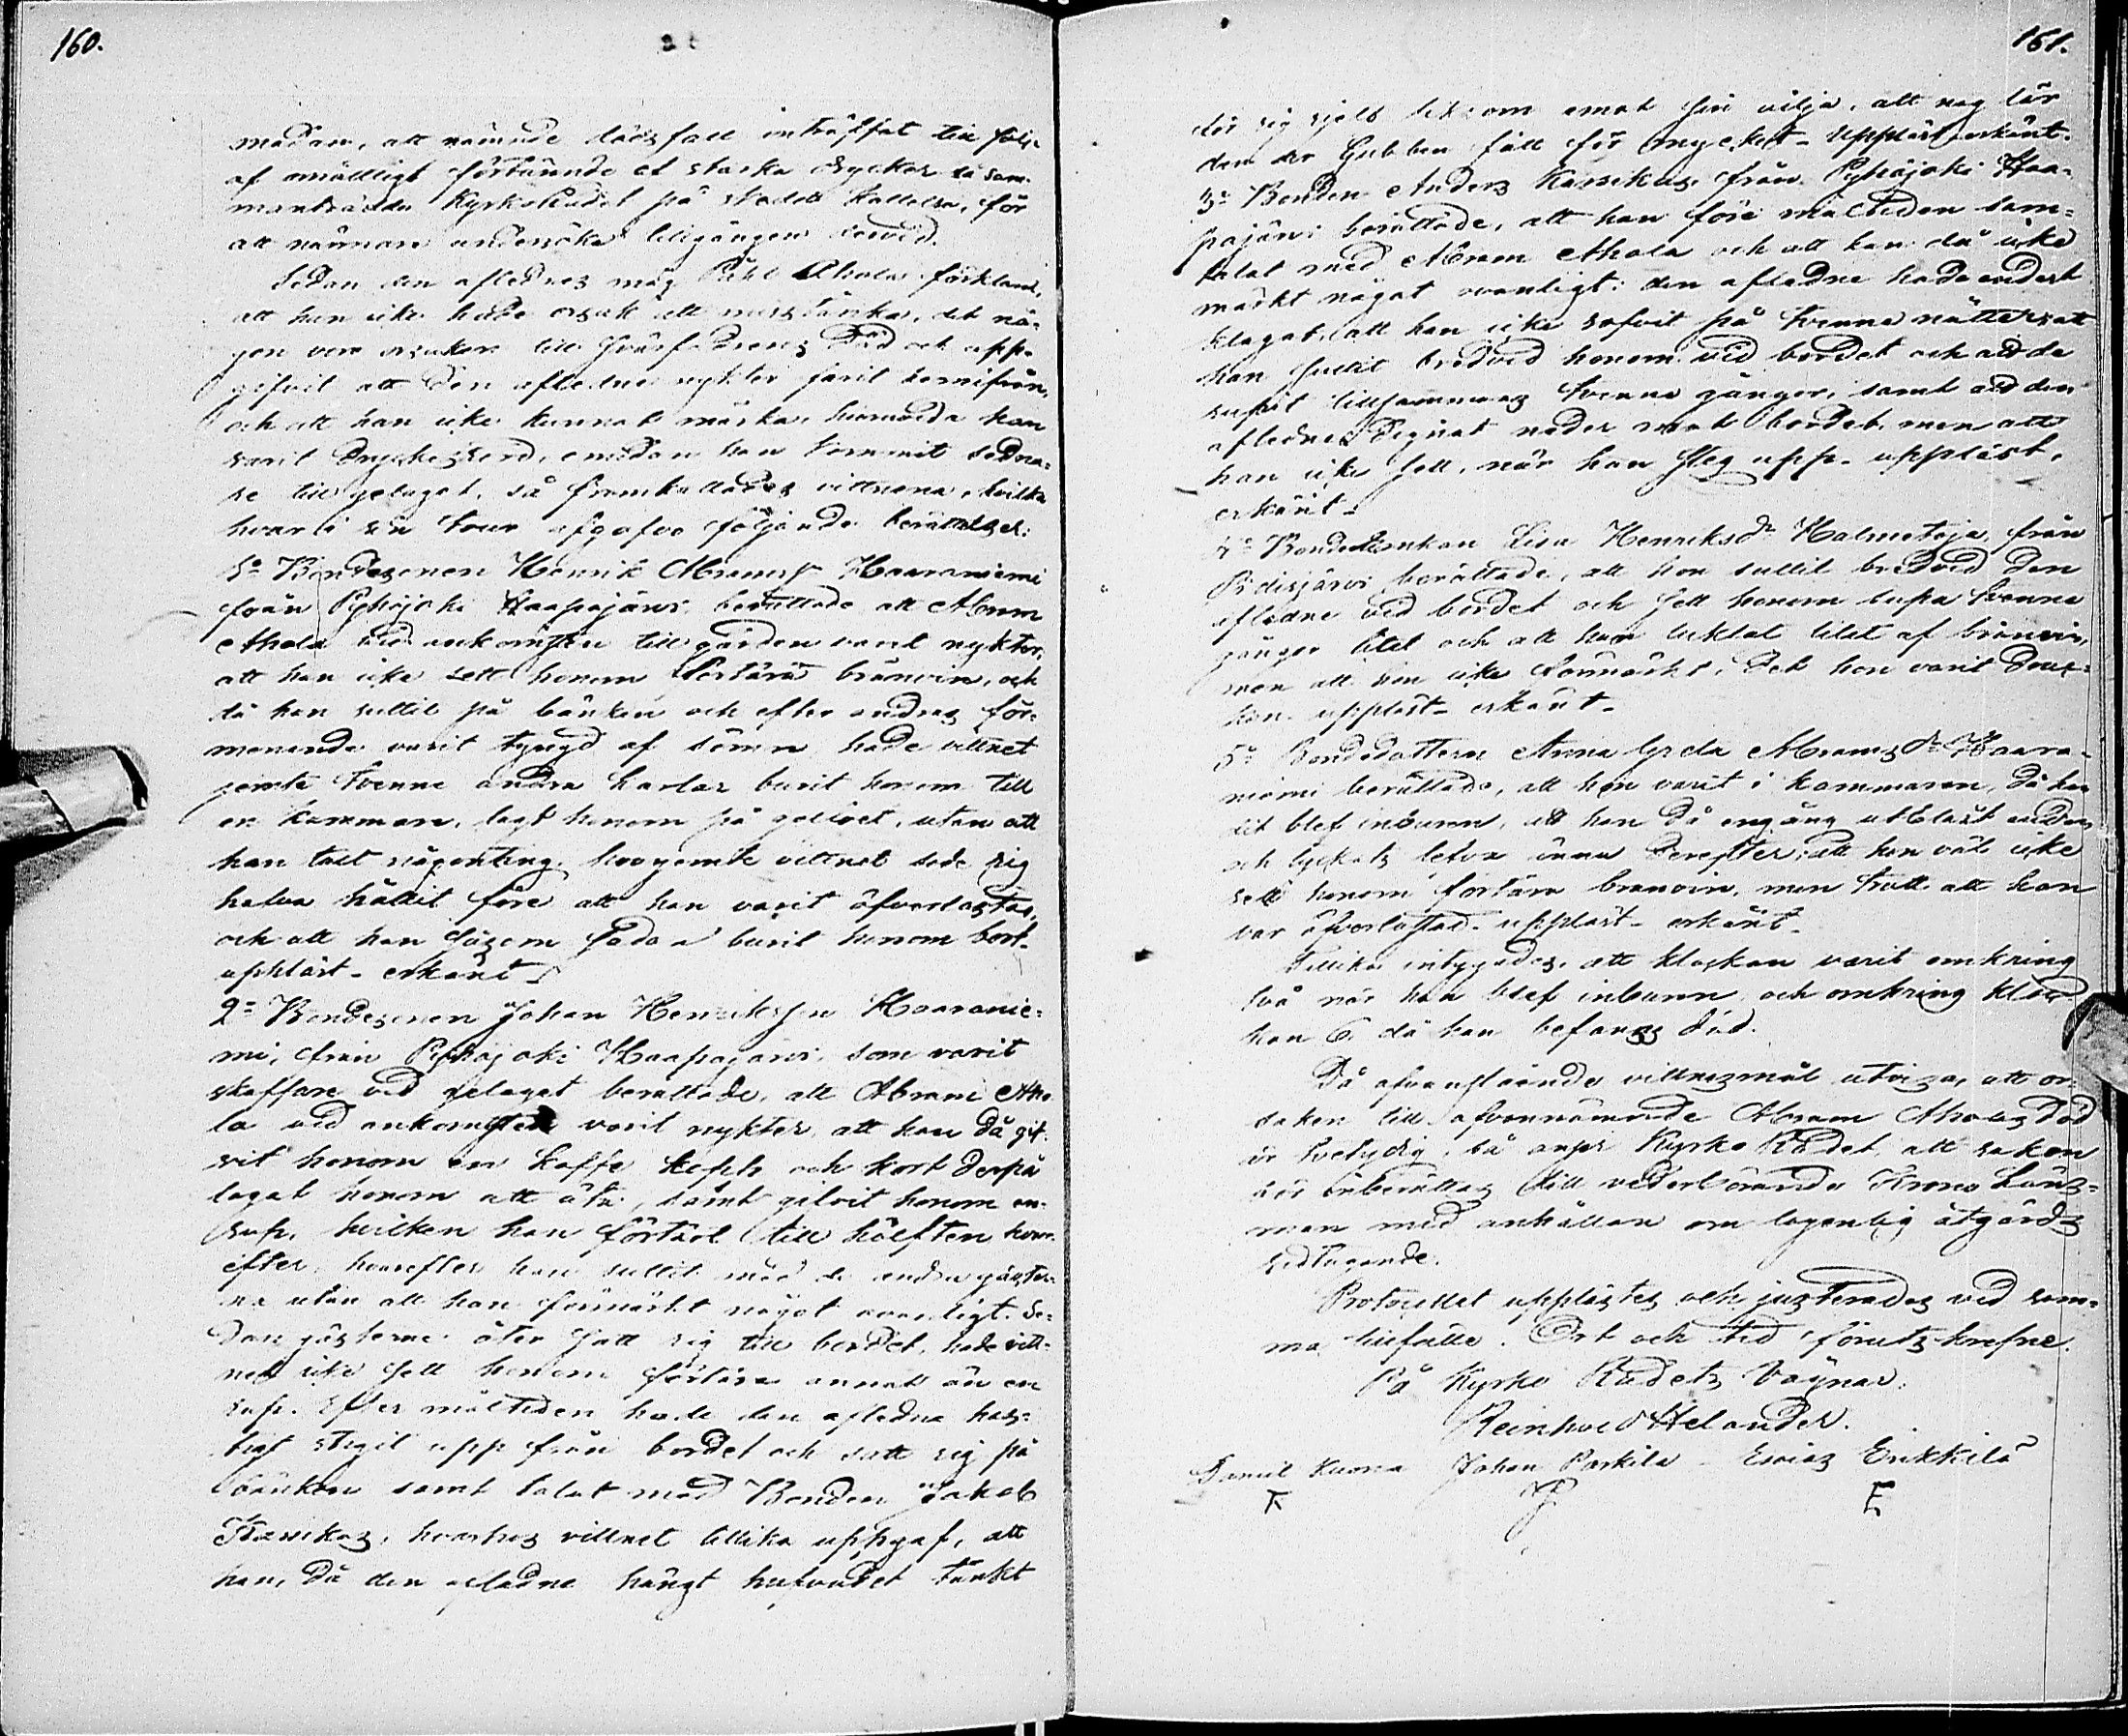 160.
medan, att nämnde dödsfall inträffat till följe
af omåttligt förtärande af starka drycker så sam-
manträdde Kyrkorådet på skedd kallelse, för
att närmare undersöka tillgången dervid.
Sedan den aflednes måg Påhl Ahola förklarat,
att han icke hade orsak att misstänka, det nå-
gon vore orsaken till svärfadrens död och upp-
gifvit att den afledne nykter farit hemifrån,
och att han icke kunnat märka, huruvida han
varit dryckesförd, emedan han kommit sedna-
re till gelaget, så framkallades vittnena, hvilka
hvar i sin tour afgåfvo följande berättelser:
1o Bondesonen Henrik Abramss. Haaraniemi
från Pyhäjoki Haapajärvi berättade att Abram
Ahola vid ankomsten till gården varit nykter,
att han icke sett honom förtära bränvin, och
då han suttit på bänken och efter andras för-
menande varit tyngd af sömn hade vittnet
jemte tvenne andra karlar burit honom till
en kammare, lagt honom på golfvet, utan att
han talt någonting, hvarjemte vittnet sade sig
halva hållit före att han varit öfverlastad,
och att han såsom sådan burit honom bort.
uppläst - erkänt
2o Bondesonen Johan Henriksson Haaranie-
mi, från Pyhäjoki Haapajärvi, som varit
skaffare vid gelaget berättade, att Abram Aho-
la vid ankomsten varit nykter, att han då gif-
vit honom en kaffe kopp och kort derpå
lagat honom att äta, samt gifvit honom en
sup, hvilken han förtärt till hälften
efter, hvarefter han suttit med de andra gäster-
na utan att han förmärkt något ovanligt. Se-
dan gästerne åter satt sig till bordet, hade vitt-
net icke sett honom förtära annat än en
sup. Efter måltiden hade den aflednа has-
tigt stigit upp från bordet och satt sig på
bänken samt talat med Bonden Jakob
Karsikas, hvarhos vittnet tillika uppgaf, att
han, då den afledne hängt hufvudet tänkt
161.
för sig sjelf liksom emot sin vilja, att nog lär
den der Gubben fått för mycket - uppläst erkänt.
3o Bonden Anders Karsikas från Pyhäjoki Haa-
pajärvi berättade, att han före måltiden sam-
talat med Abram Ahola och att han då icke
märkt något ovanligt: den afledne hade endast
klagat, att han icke sofvit på tvenne nätter, att
han suttit bredvid honom vid bordet och att de
supit tillsammans tvenne gånger, samt att den
aflednе dignat neder mot bordet, men att
han icke sett, när han steg upp. uppläst,
erkänt.
4o Bondeenkan Lisa Henriksdr Halmetoja från
Pidisjärvi berättade, att hon suttit bredvid den
aflidne vid bordet och sett honom supa tvenne
gånger litet och att han luktat litet af bränvin,
men att hon icke förmärkt, det han varit druc-
ken. uppläst - erkänt.
5o Bondedottern Anna Greta Abramsdr Haara-
niemi berättade, att hon varit i kammaren, då han
dit blef inburen, att han då engång utblåst anden
och lyckats lefva ännu derefter; att hon väl icke
sett honom förtära bränvin, men trott att han
var öfverlastad. uppläst - erkänt.
Tillika intygades, att klockan varit omkring
två när han blef inburen och omkring kloc-
kan 6 då han befanns död.
Då ofvanstående vittnesmål utvisa, att or-
saken till ofvannämnde Abram Aholas död
är tvetydig, så anser Kyrko Rådet, att saken
bör inberättas till vederbörande Krono Läns-
man med anhållan om lagenlig åtgärds
vidtagande.
Protocollet upplästes och justerades vid sam-
ma tillfälle. Ort och tid förutskrefne.
På Kyrko Rådets Vägnar:
Reinhold Helander.
Daniel Kuona Johan Parkila Esaias Erikkilä
K P E